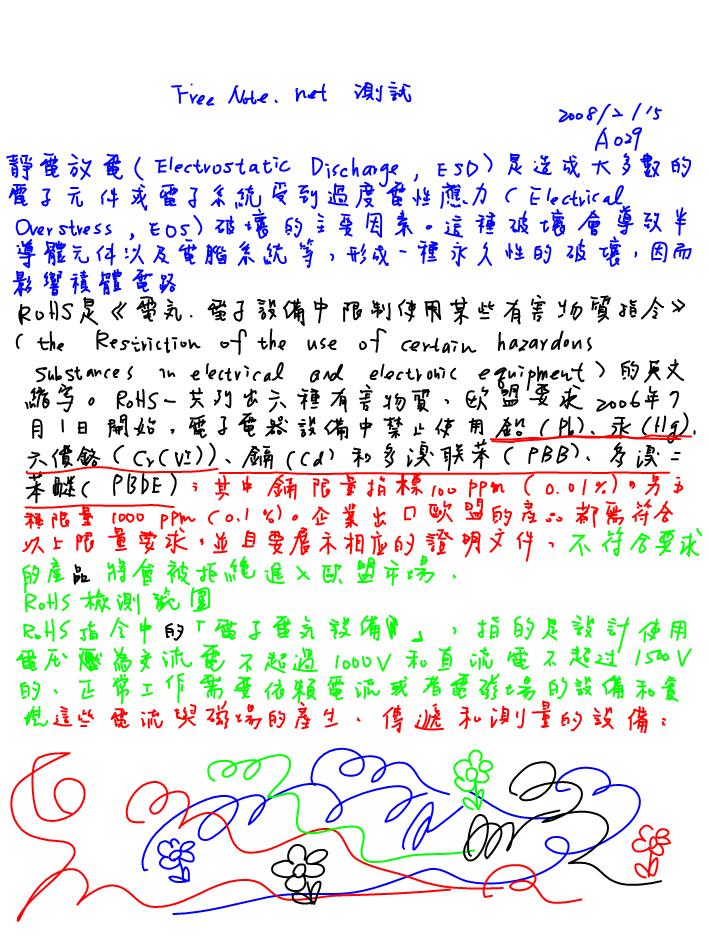 Free Note. net 測試
2008/2/15
A029
靜電放電(Electrostatic Discharge, ESD)是造成大多數的
電子元件或電子系統受到過度電性應力(Electrical
Overstress, EOS)破壞的主要因素。這種破壞會導致半
導體元件以及電腦系統等,形成一種永久性的破壞,因而
影響積體電路
RoHS是《電気、電子設備中限制使用某些有害物質指令》
(the Restriction of the use of certain hazardous
substances in electrical and electronic equipment)的英文
縮寫。RoHS一共列出六種有害物質,歐盟要求2006年7
月1日開始,電子電器設備中禁止使用鉛(Pb)、汞(Hg)、
六價鉻(Cr(VI))、鎘(Cd)和多溴联苯(PBB)、多溴二
苯醚(PBDE);其中鎘限量指標100 ppm(0.01%)。另五
種限量1000 ppm(0.1%)。企業出口歐盟的產品都需符合
以上限量要求,並且要展示相應的證明文件,不符合要求
的產品將會被拒絕進入歐盟市場.
RoHS檢測範圍
RoHS指令中的「電子電気設備」,指的是設計使用
電压壓為交流電不超過1000V和直流電不超过1500V
的、正常工作需要依賴電流或者電磁場的設備和實
現這些電流與磁場的產生、傳遞和測量的設備;